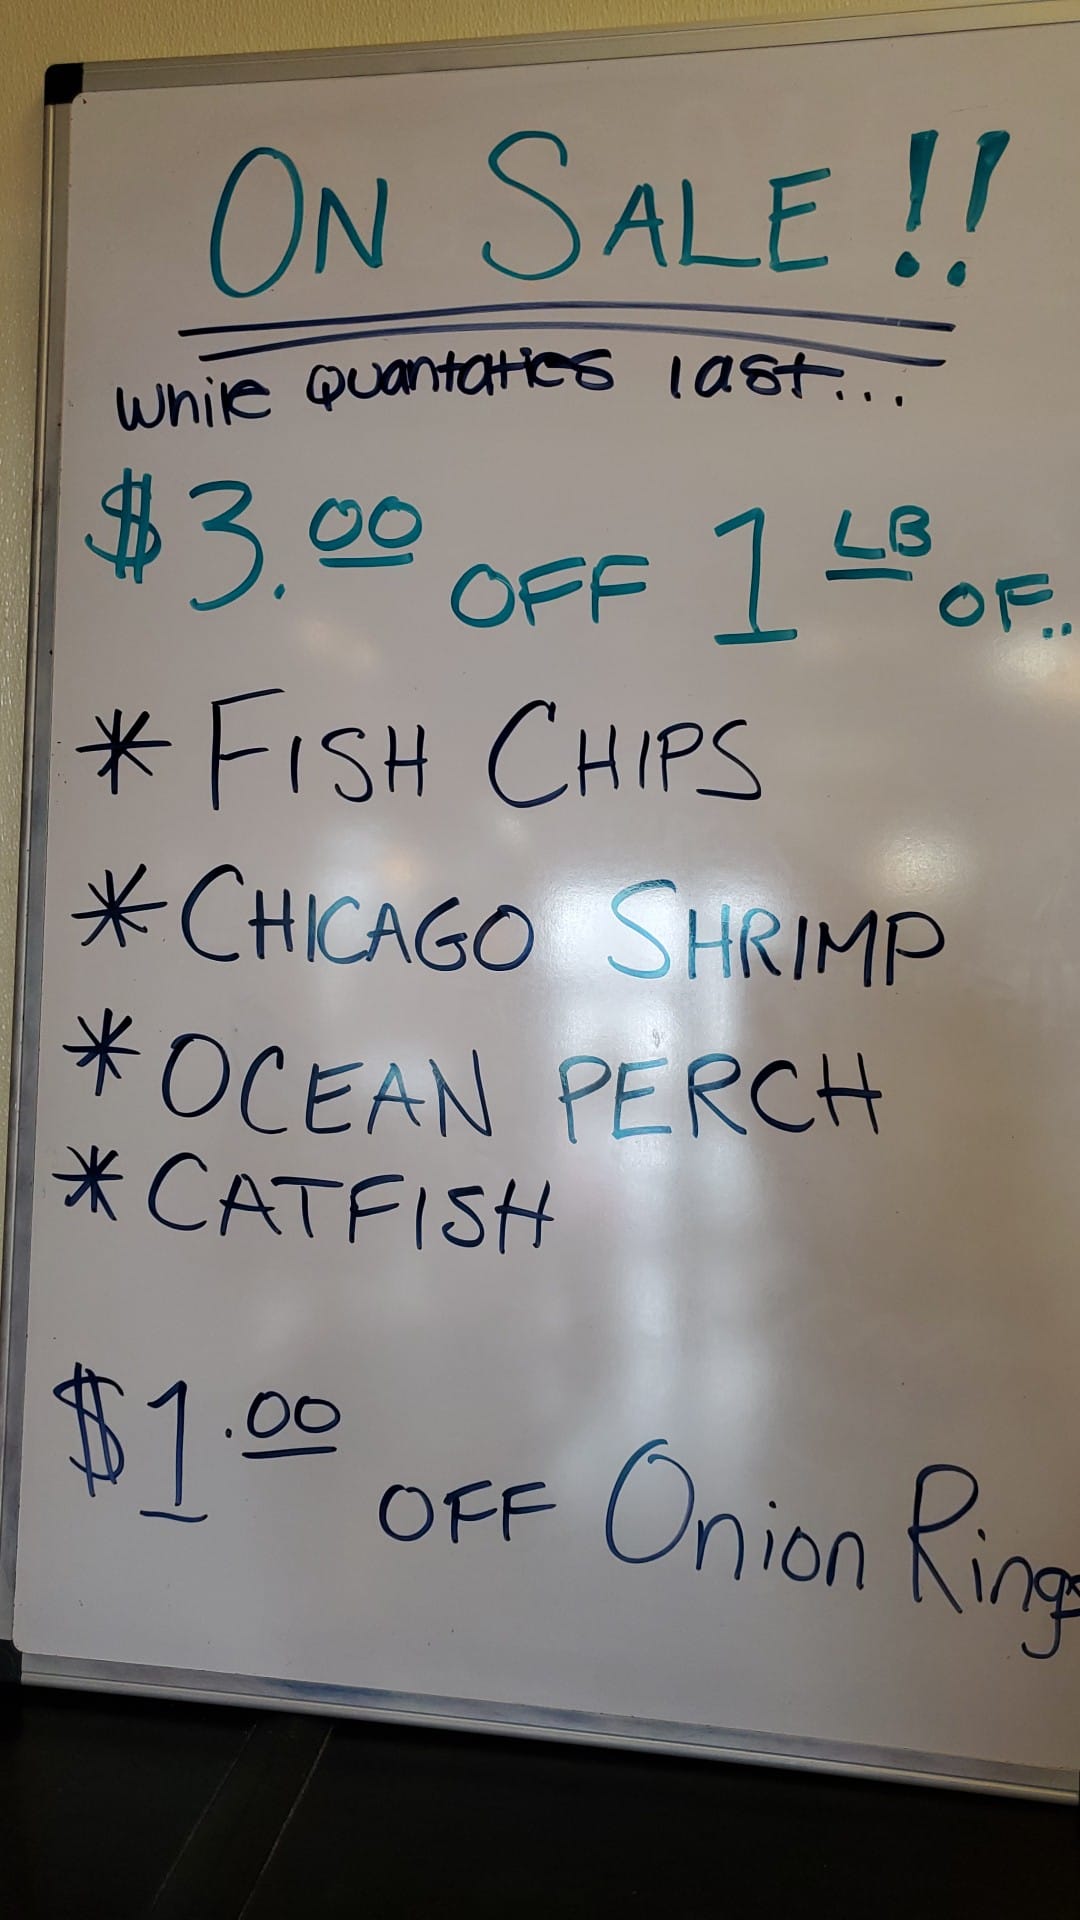 ON SALE!!
while Quantaties last...
$3.00 OFF 1 LB OF..
* FISH CHIPS
* CHICAGO SHRIMP
* OCEAN PERCH
* CATFISH
$1.00 OFF Onion Rings